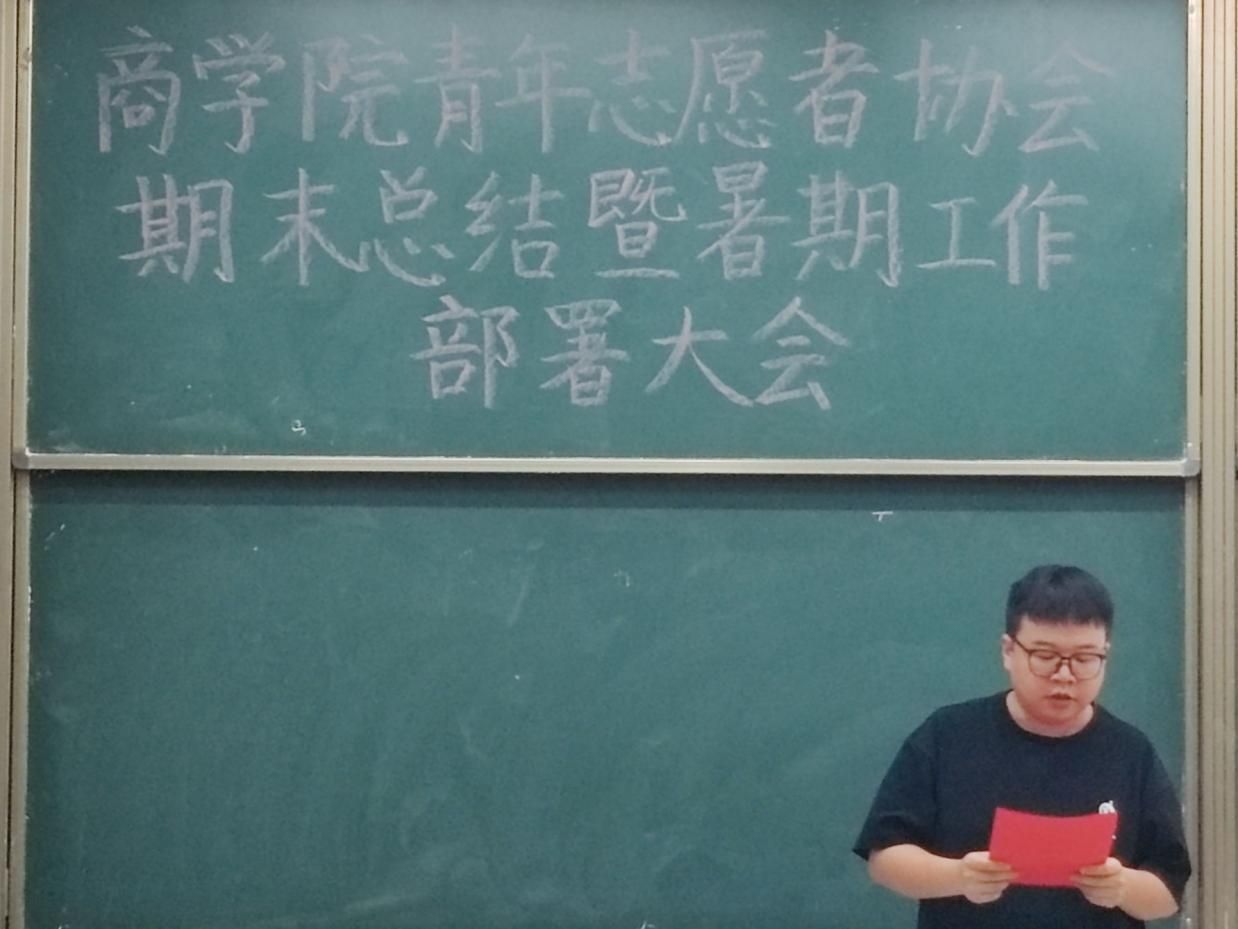 商学院青年志愿者协会
期末总结暨暑期工作
部署大会